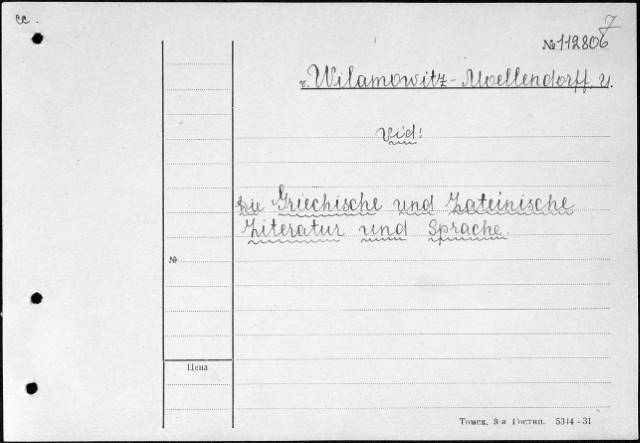 cc.
7
№ 112806
v. Wilamowitz-Moellendorff, U.
Vid:
Die Griechische und Lateinische
Literatur und Sprache.
№
Цена
Томск. 3-я Гостип. 5344-31